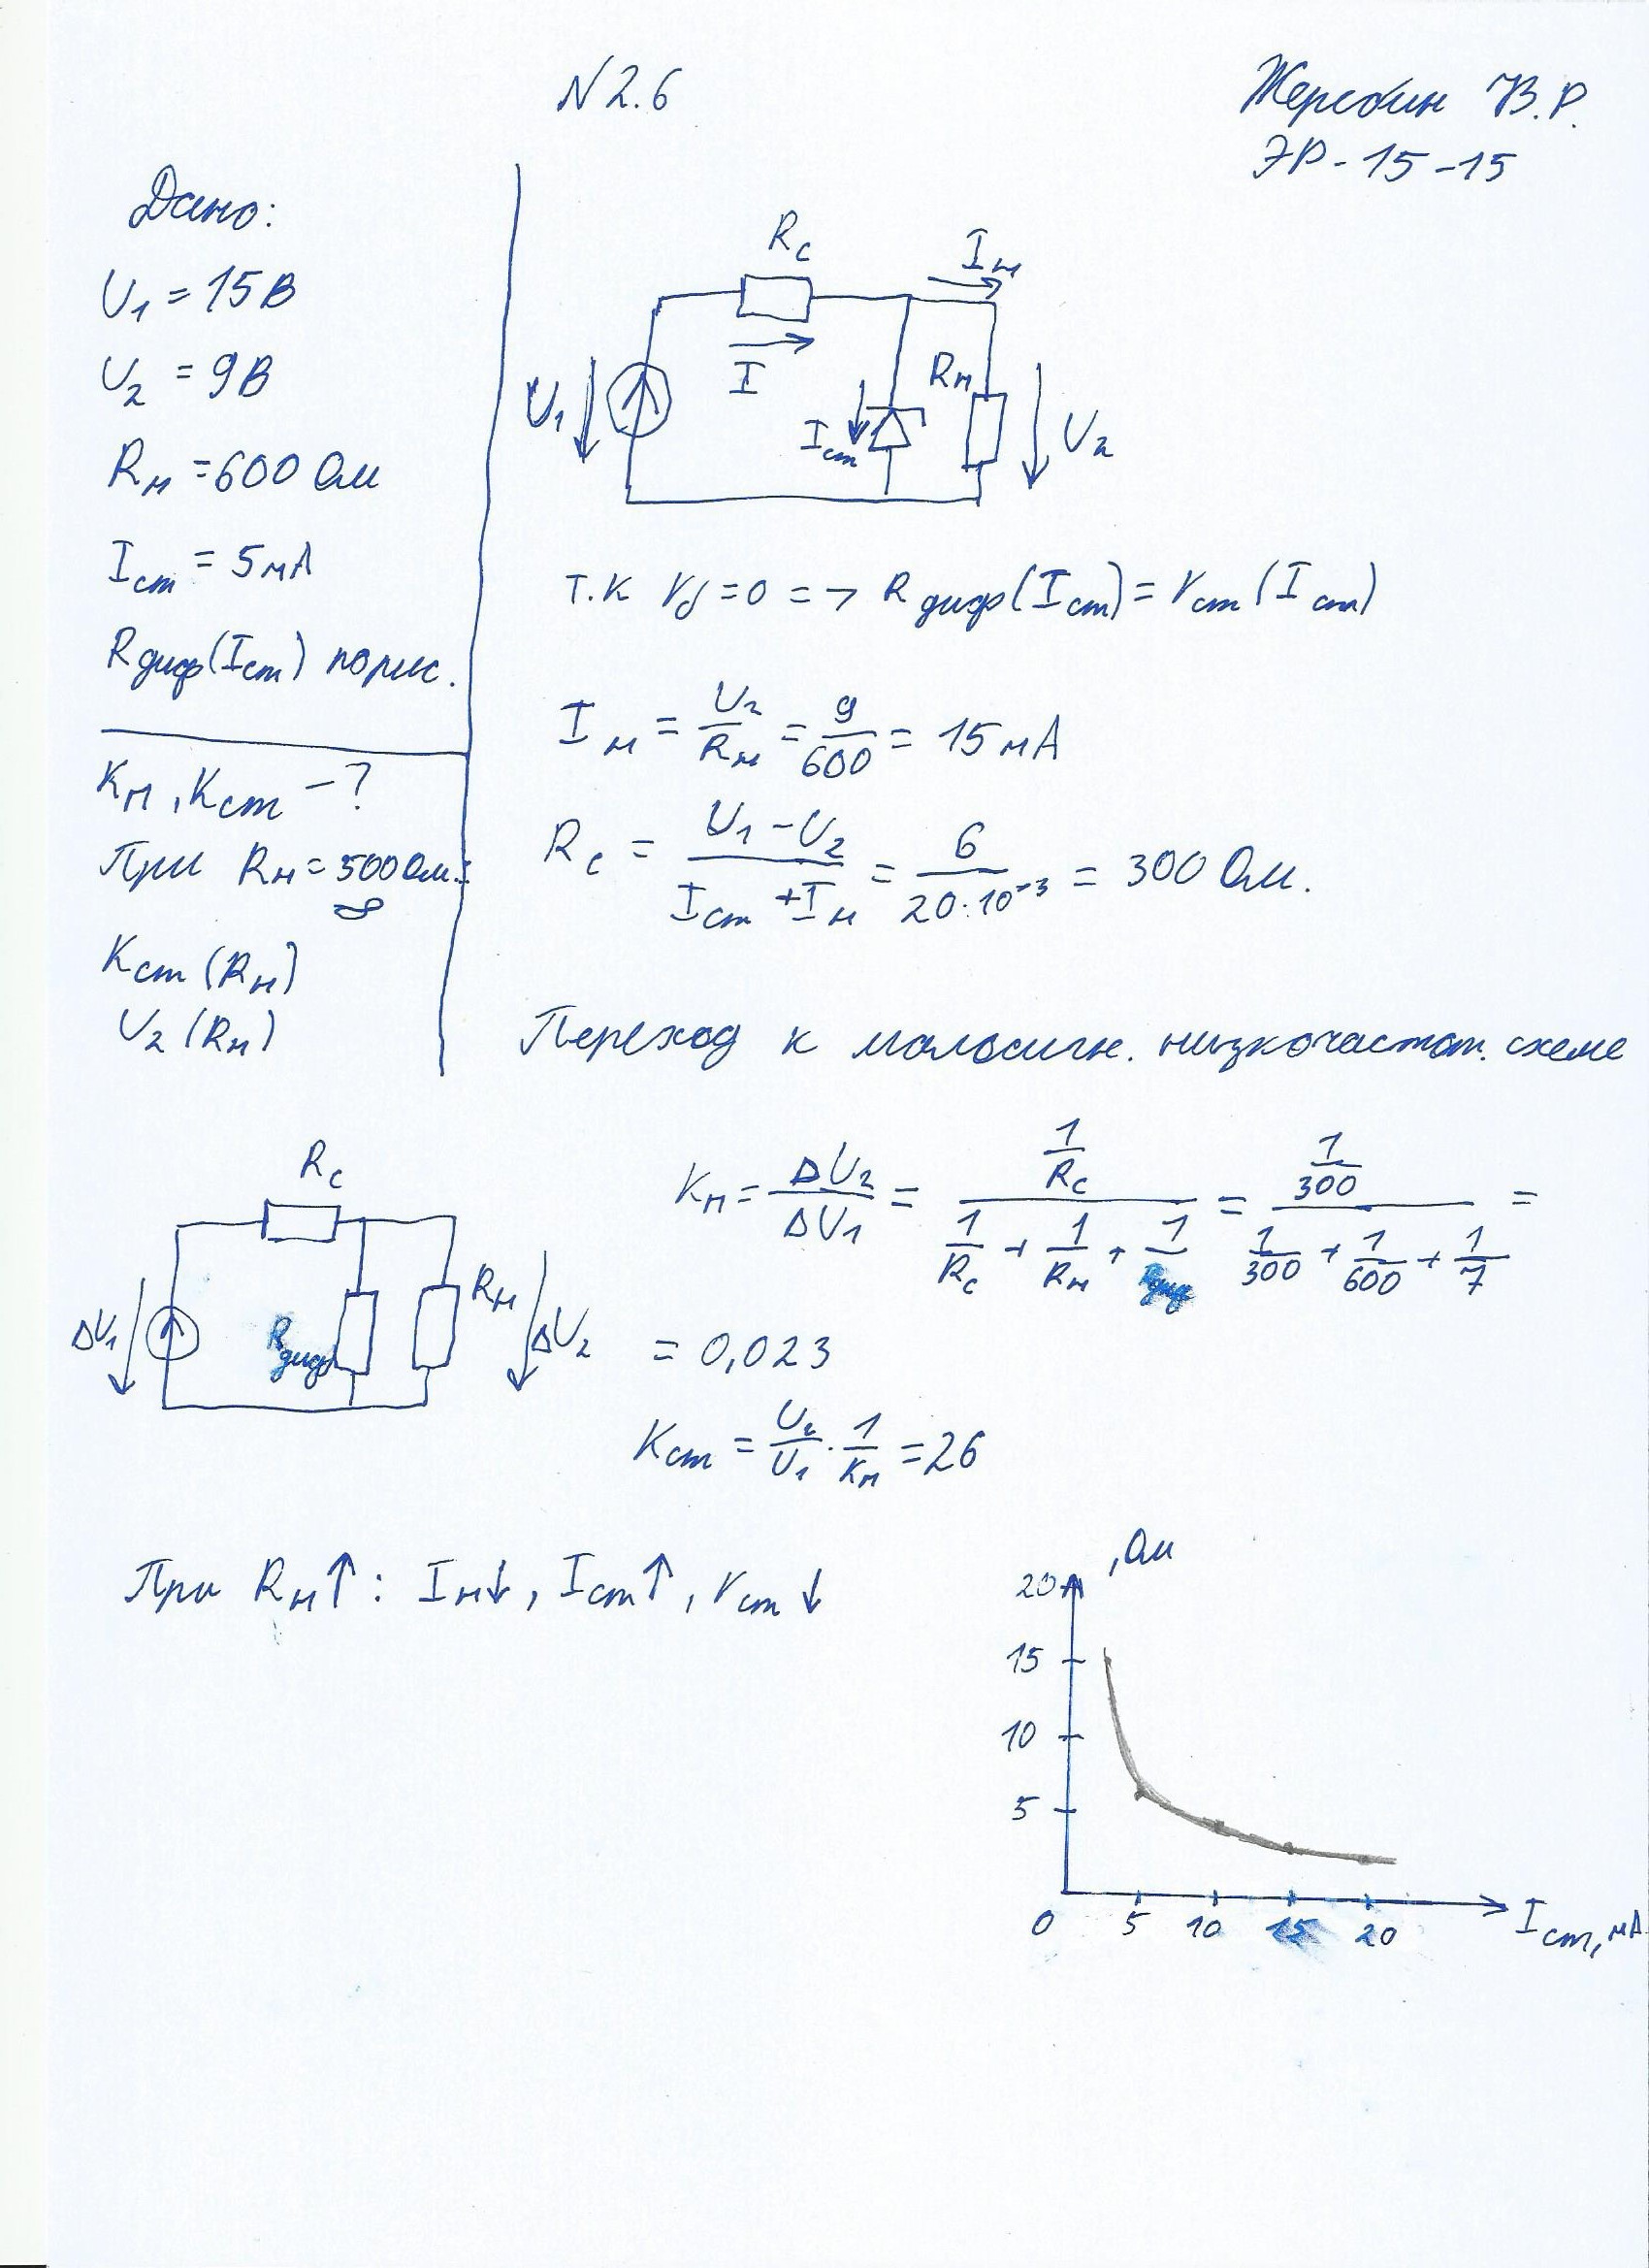 N 2.6
Жеребин В.Р.
ЭР-15-15
Дано:
U₁ = 15В
U₂ = 9В
Rн = 600 Ом
Iст = 5мА
Rдиф(Iст)
Kн, Kст - ?
При Rн = 500 Ом..
∞
Kст (Rн)
U₂ (Rн)
Rс
Iн
I
U₁
Iст
Rн
U₂
т.к rб = 0 => Rдиф(Iст) = rст(Iст)
Iн = U₂/Rн = 9/600 = 15мА
Rс = (U₁ - U₂)/(Iст + Iн) = 6/(20·10⁻³) = 300 Ом.
Переход к малосигн. низкочастот. схеме
Rс
ΔU₁
Rдиф
Rн
ΔU₂
Kн = ΔU₂/ΔU₁ = (1/Rс)/(1/Rс + 1/Rн + 1/Rдиф) = (1/300)/(1/300 + 1/600 + 1/7) =
= 0,023
Kст = U₂/U₁ · 1/Kн = 26
При Rн↑: Iн↓, Iст↑, rст↓
, Ом
20
15
10
5
0 5 10 15 20 Iст, мА